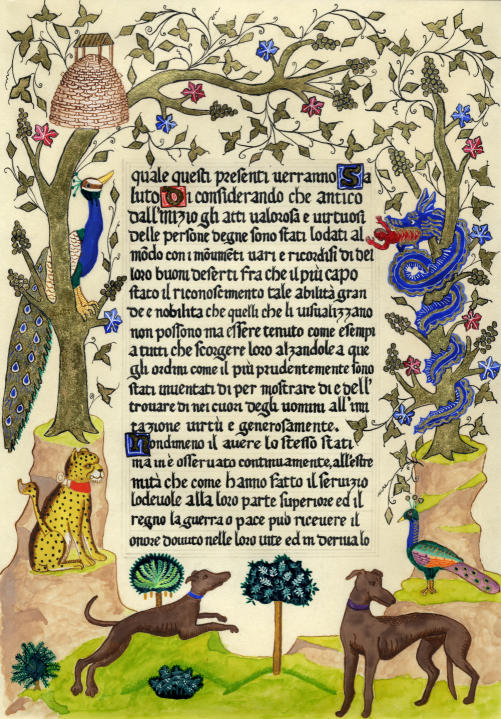 quale questi presenti verranno Sa
luto Di considerando che antico
dall'inizio gli atti valorosa e virtuosi
delle persone degne sono stati lodati al
mōdo con i mōumēti vari e ricordisi di del
loro buoni deserti fra che il più capo
stato il riconoscimento tale abilità gran
de e nobilita che quelli che li visualizzano
non possono ma essere tenuto come esempi
a tutti che scorgere loro alzandole a que
gli ordini come il più prudentemente sono
stati inventati di per mostrare di e dell'
trovare di nei cuori degli uomini all'imi
tazione virtù e generosamente.
Nondimeno il avere lo stesso stati
ma in è osservato continuamente, all'estre
mità che come hanno fatto il servizio
lodevole alla loro parte superiore ed il
regno la guerra o pace può ricevere il
onore dovuto nelle loro vite ed in deriva lo